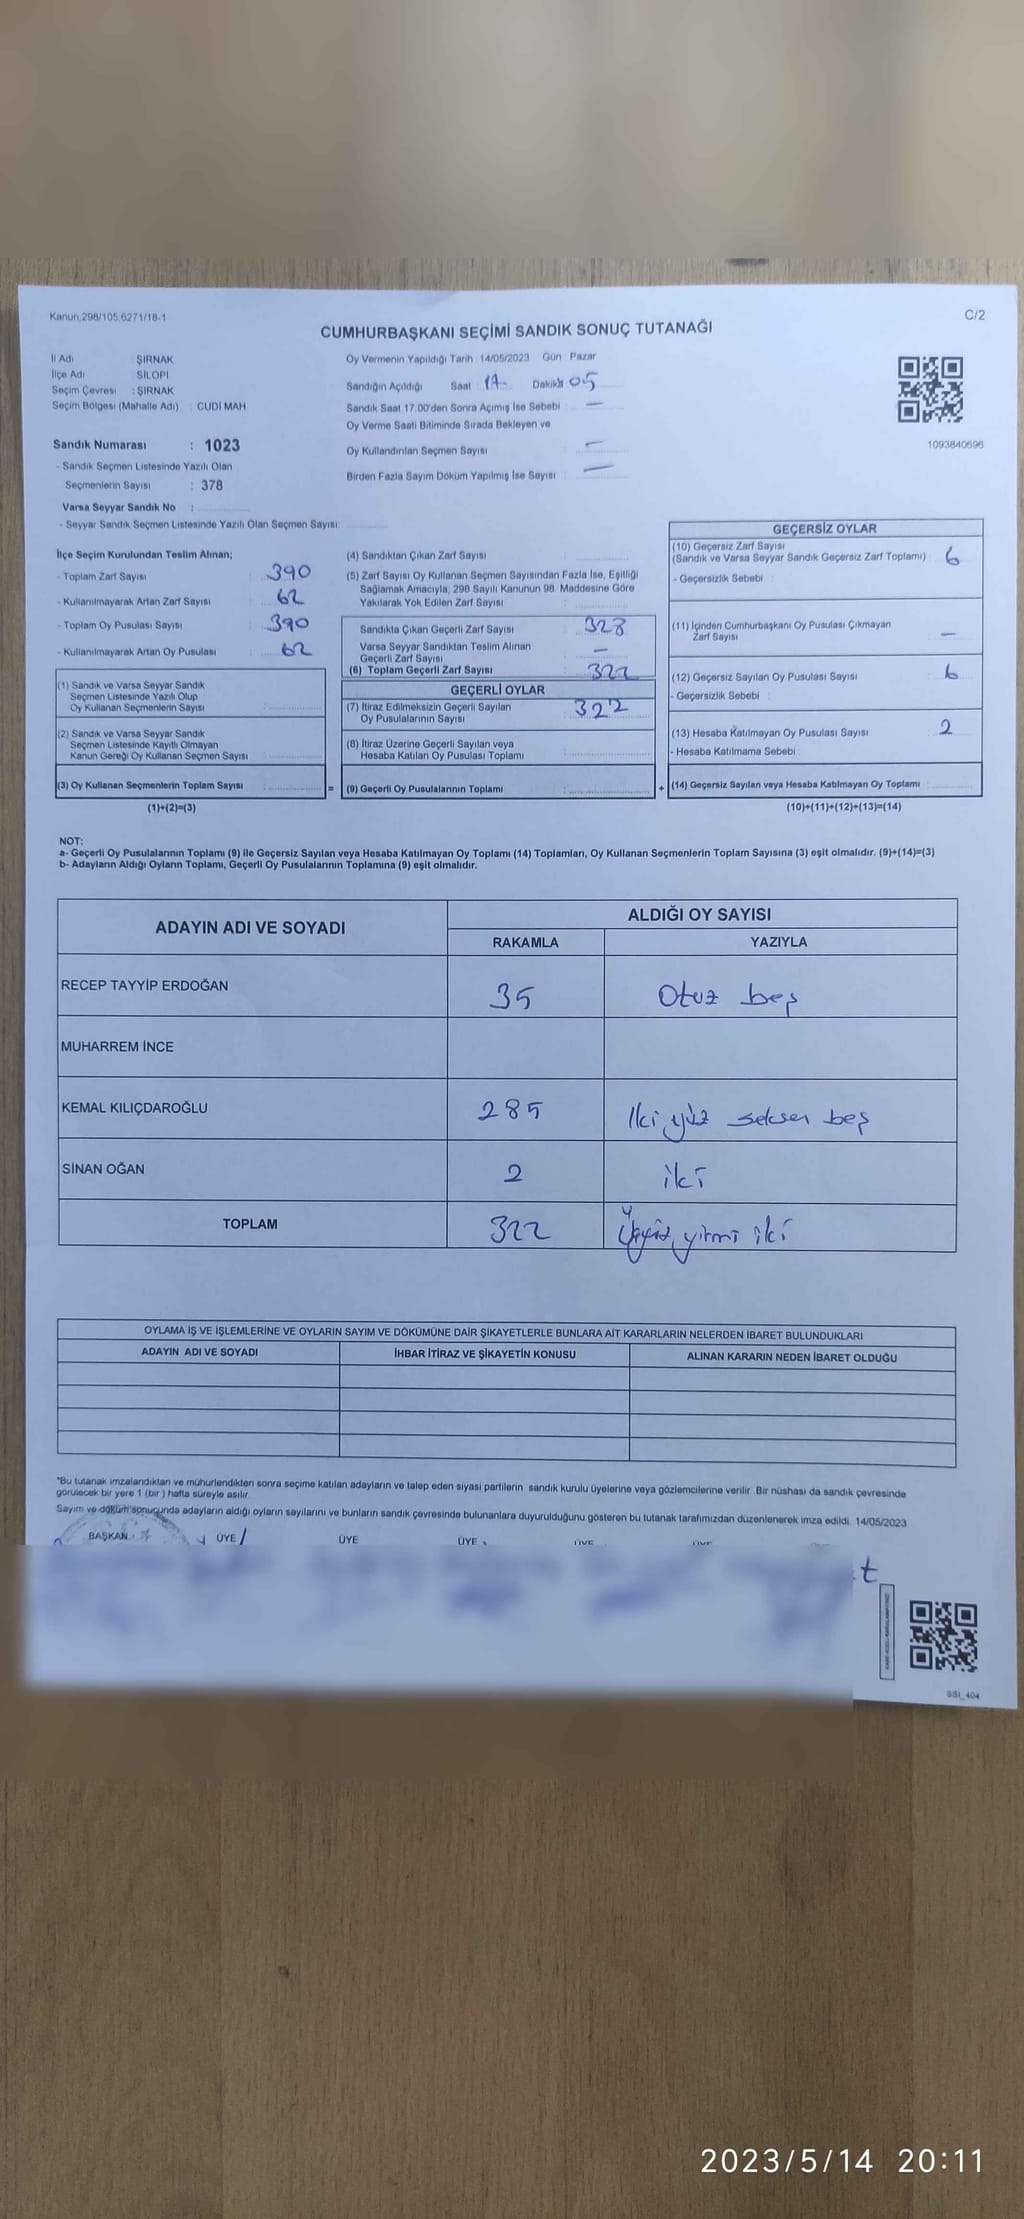 Kanun,298/105;6271/18-1
C/2
CUMHURBAŞKANI SEÇİMİ SANDIK SONUÇ TUTANAĞI
İl Adı ŞIRNAK
İlçe Adı SİLOPİ
Seçim Çevresi : ŞIRNAK
Seçim Bölgesi (Mahalle Adı) : CUDİ MAH.
Oy Vermenin Yapıldığı Tarih :14/05/2023 Gün : Pazar
Sandığın Açıldığı Saat 17 Dakika 05
Sandık Saat 17.00'den Sonra Açımış İse Sebebi : —
Oy Verme Saati Bitiminde Sırada Bekleyen ve
Oy Kullandırılan Seçmen Sayısı —
Birden Fazla Sayım Döküm Yapılmış İse Sayısı : —
1093840696
Sandık Numarası : 1023
- Sandık Seçmen Listesinde Yazılı Olan
Seçmenlerin Sayısı : 378
Varsa Seyyar Sandık No :
- Seyyar Sandık Seçmen Listesinde Yazılı Olan Seçmen Sayısı:
İlçe Seçim Kurulundan Teslim Alınan;
- Toplam Zarf Sayısı : 390
- Kullanılmayarak Artan Zarf Sayısı : 62
- Toplam Oy Pusulası Sayısı : 390
- Kullanılmayarak Artan Oy Pusulası : 62
(1) Sandık ve Varsa Seyyar Sandık
Seçmen Listesinde Yazılı Olup
Oy Kullanan Seçmenlerin Sayısı :
(2) Sandık ve Varsa Seyyar Sandık
Seçmen Listesinde Kayıtlı Olmayan
Kanun Gereği Oy Kullanan Seçmen Sayısı :
(3) Oy Kullanan Seçmenlerin Toplam Sayısı : =
(1)+(2)=(3)
(4) Sandıktan Çıkan Zarf Sayısı :
(5) Zarf Sayısı Oy Kullanan Seçmen Sayısından Fazla İse, Eşitliği
Sağlamak Amacıyla, 298 Sayılı Kanunun 98. Maddesine Göre
Yakılarak Yok Edilen Zarf Sayısı :
Sandıkta Çıkan Geçerli Zarf Sayısı : 328
Varsa Seyyar Sandıktan Teslim Alınan
Geçerli Zarf Sayısı : —
(6) Toplam Geçerli Zarf Sayısı : 322
GEÇERLİ OYLAR
(7) İtiraz Edilmeksizin Geçerli Sayılan
Oy Pusulalarının Sayısı : 322
(8) İtiraz Üzerine Geçerli Sayılan veya
Hesaba Katılan Oy Pusulası Toplamı :
(9) Geçerli Oy Pusulalarının Toplamı : +
GEÇERSİZ OYLAR
(10) Geçersiz Zarf Sayısı
(Sandık ve Varsa Seyyar Sandık Geçersiz Zarf Toplamı) : 6
- Geçersizlik Sebebi :
(11) İçinden Cumhurbaşkanı Oy Pusulası Çıkmayan
Zarf Sayısı : —
(12) Geçersiz Sayılan Oy Pusulası Sayısı : 6
- Geçersizlik Sebebi :
(13) Hesaba Katılmayan Oy Pusulası Sayısı : 2
- Hesaba Katılmama Sebebi :
(14) Geçersiz Sayılan veya Hesaba Katılmayan Oy Toplamı :
(10)+(11)+(12)+(13)=(14)
NOT:
a- Geçerli Oy Pusulalarının Toplamı (9) ile Geçersiz Sayılan veya Hesaba Katılmayan Oy Toplamı (14) Toplamları, Oy Kullanan Seçmenlerin Toplam Sayısına (3) eşit olmalıdır. (9)+(14)=(3)
b- Adayların Aldığı Oyların Toplamı, Geçerli Oy Pusulalarının Toplamına (9) eşit olmalıdır.
ADAYIN ADI VE SOYADI
ALDIĞI OY SAYISI
RAKAMLA YAZIYLA
RECEP TAYYİP ERDOĞAN 35 Otuz beş
MUHARREM İNCE
KEMAL KILIÇDAROĞLU 285 İki yüz seksen beş
SİNAN OĞAN 2 iki
TOPLAM 322 Üçyüz yirmi iki
OYLAMA İŞ VE İŞLEMLERİNE VE OYLARIN SAYIM VE DÖKÜMÜNE DAİR ŞİKAYETLERLE BUNLARA AİT KARARLARIN NELERDEN İBARET BULUNDUKLARI
ADAYIN ADI VE SOYADI İHBAR İTİRAZ VE ŞİKAYETİN KONUSU ALINAN KARARIN NEDEN İBARET OLDUĞU
*Bu tutanak imzalandıktan ve mühürlendikten sonra seçime katılan adayların ve talep eden siyasi partilerin sandık kurulu üyelerine veya gözlemcilerine verilir. Bir nüshası da sandık çevresinde
görülecek bir yere 1 (bir ) hafta süreyle asılır.
Sayım ve döküm sonucunda adayların aldığı oyların sayılarını ve bunların sandık çevresinde bulunanlara duyurulduğunu gösteren bu tutanak tarafımızdan düzenlenerek imza edildi. 14/05/2023
BAŞKAN ÜYE ÜYE ÜYE ÜYE ÜYE
SSI_404
2023/5/14 20:11